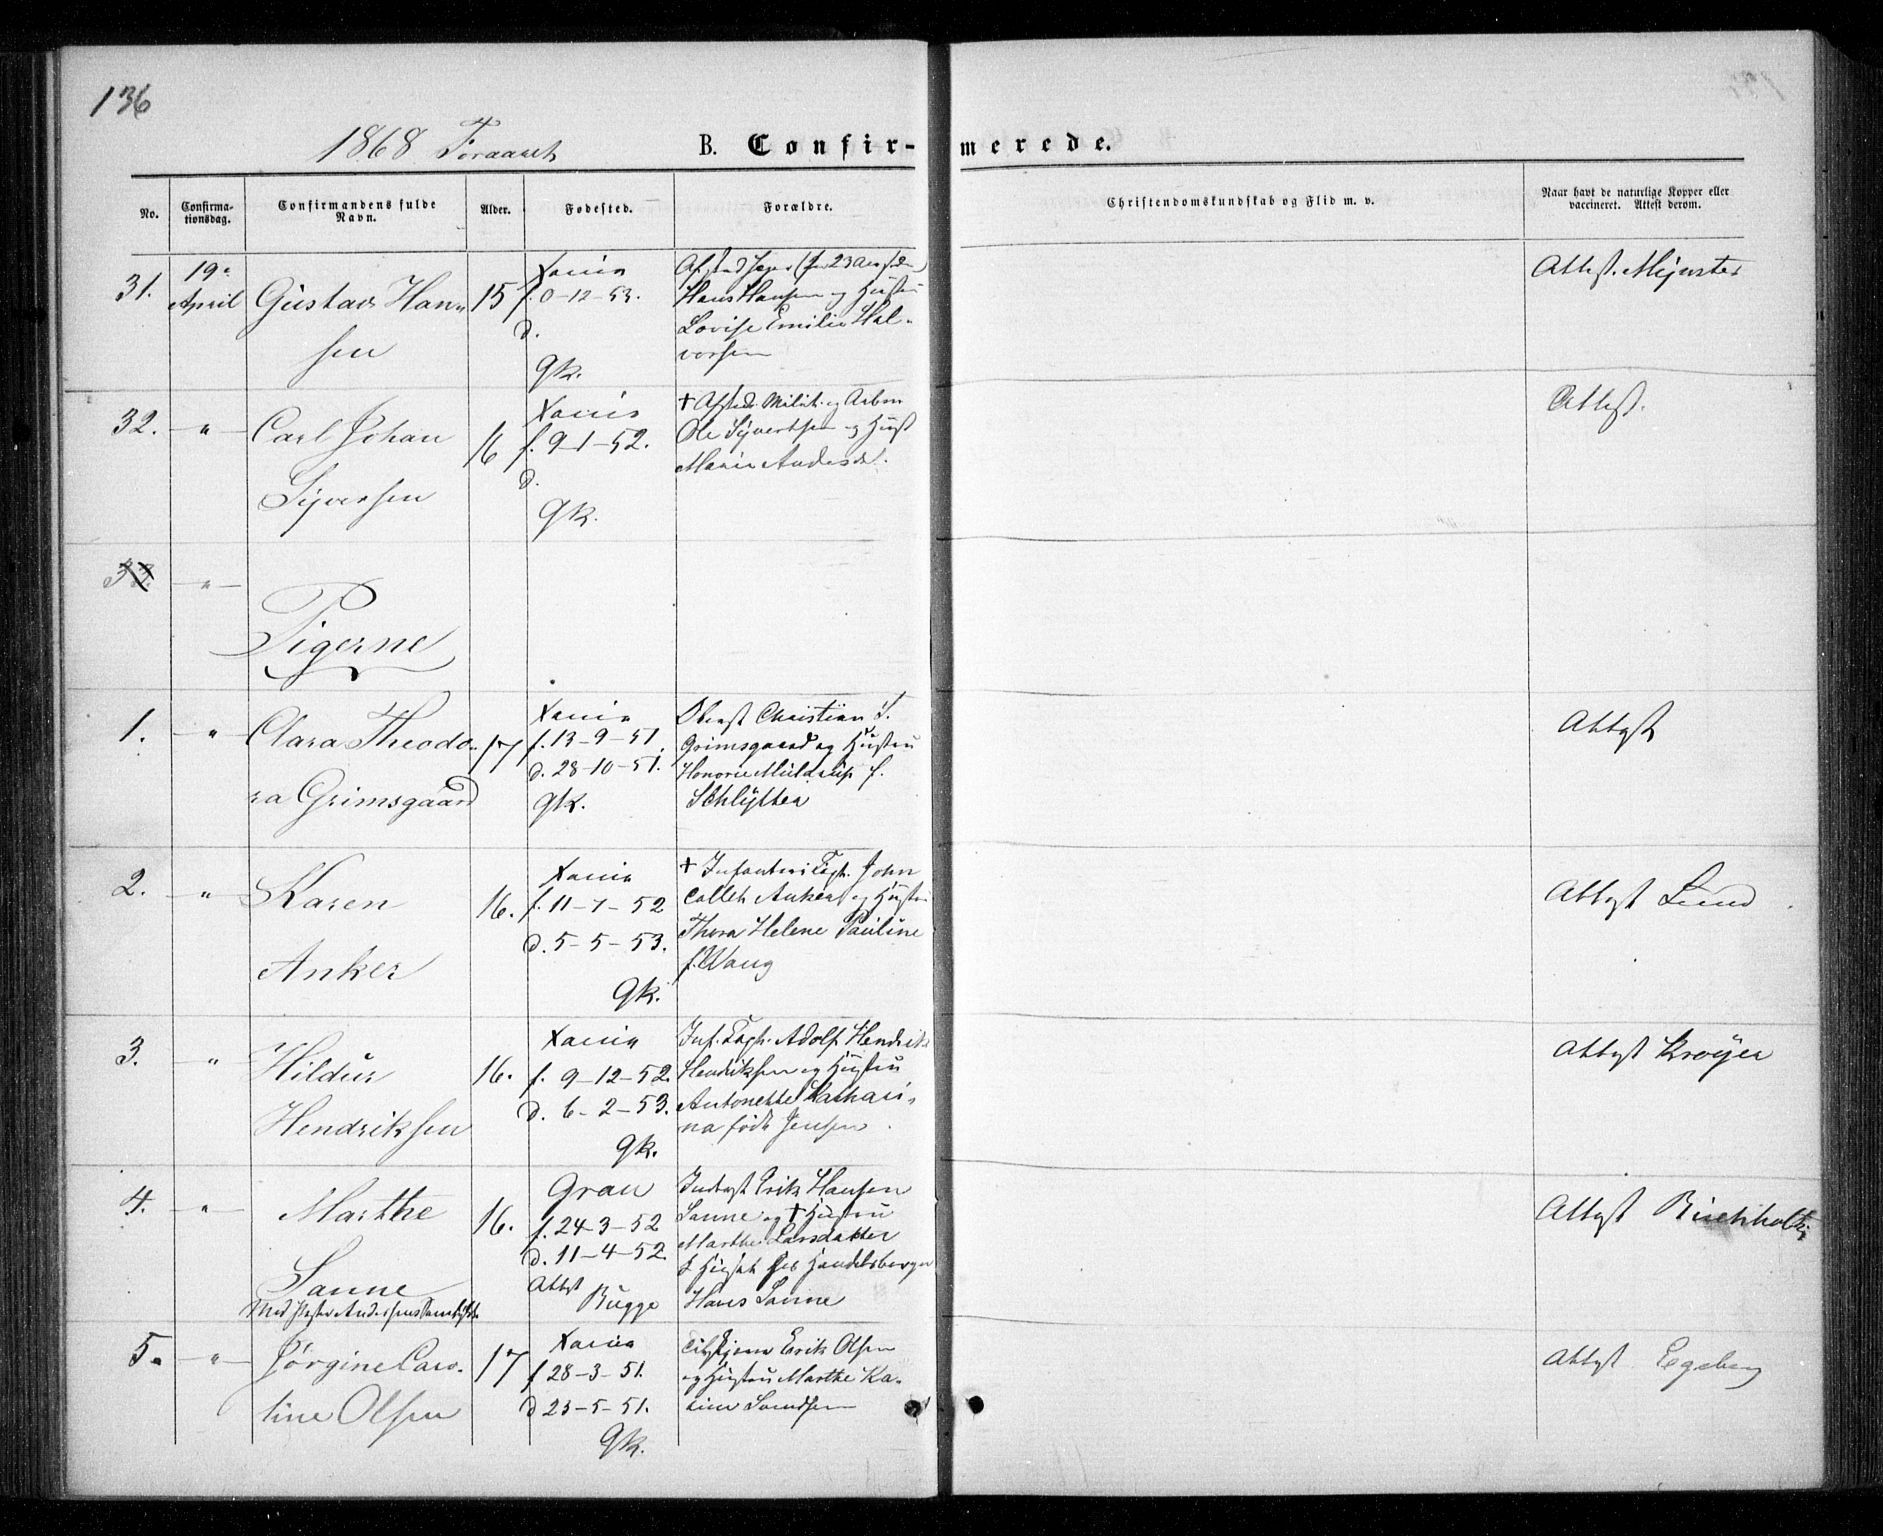 136
1868 Foraaret
B. Confir-merede.
No.
Confirma-
tionsdag.
Confirmandens fulde
Navn.
Alder.
Fødested.
Forældre.
Christendomskundskab og Flid m. v.
Naar havt de naturlige Kopper eller
vaccineret. Attest derom.
31.
19de
April
Gustav Han-
sen
15
Xania
f. 0-12-53.
d.
gk.
Hans Hansen og Hustru
Lovise Emilie Hal-
vorsen
Attest. Mynster
32.
"
Carl Johan
Syversen
16
Xania
f. 9-1-52.
d.
gk.
† Afsked. Milit. og Arbm
Ole Syvertsen og Hust
Marie Andersd.
Attest.
33.
"
Pigerne
1.
"
Clara Theodo-
ra Grimsgaard
17
Xania
f. 13-9-51.
d. 28-10-51.
gk.
Oberst Christian S.
Grimsgaard og Hustru
Honorie Muldrup f.
Schlytter
Attest
2.
"
Karen
Anker
16.
Xania
f. 11-7-52
d. 5-5-53.
gk.
† Infanteri Capt. John
Collett Anker og Hustru
Thora Helene Pauline
f. Wang
Attest Lund
3.
"
Hildur
Hendriksen
16.
Xania
f. 9-12-52.
d. 6-2-53.
gk.
Inf. Capt. Adolf Hendrik
Hendriksen og Hustru
Antonette Kathari-
na født Jensen
Attest Krøyer
4.
"
Marthe
Sanne
16.
Gran
f. 24-3-52
d. 11-4-52.
Attest
Bugge
Inderst Erik Hansen
Sanne og † Hustru
Marthe Larsdatter
Handelsborger
Hans Sanne
Attest Buchholtz
Med Pastor Anderssens Samtykke
5.
"
Jørgine Caro-
line Olsen
17
Xania
f 28-3-51.
d 25-5-51.
gk.
Erik Olsen
og Hustru Marthe Ka-
rine Svendsen
Attest Egeberg